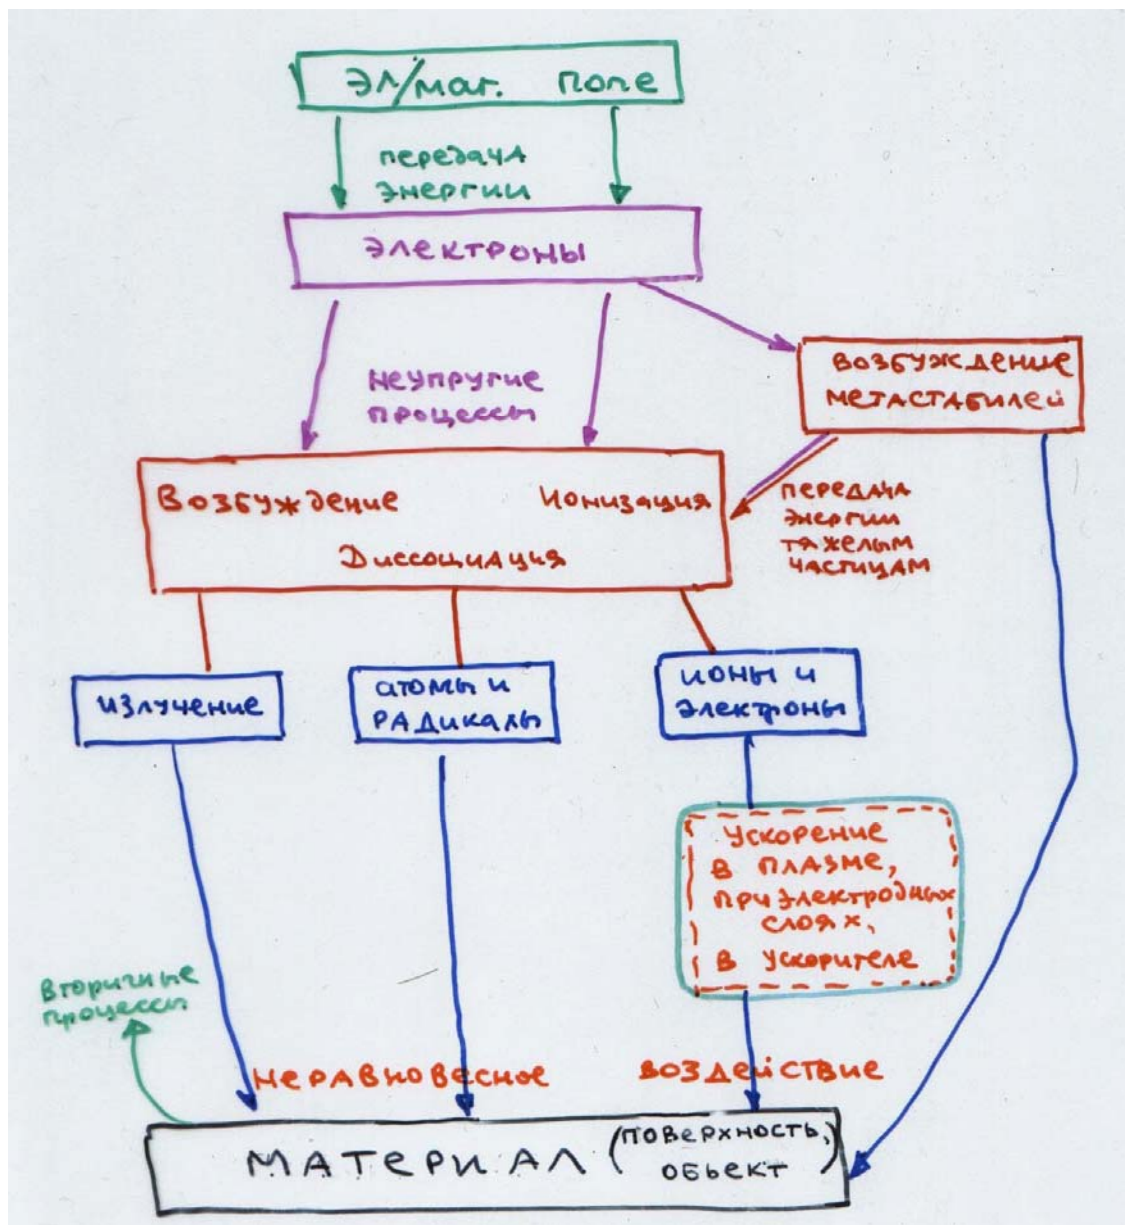 Эл/маг. поле
передача
энергии
электроны
неупругие
процессы
возбуждение
метастабилей
Возбуждение Ионизация
Диссоциация
передача
энергии
тяжелым
частицам
излучение
атомы и
радикалы
ионы и
электроны
Ускорение
в плазме,
приэлектродных
слоях,
в ускорителе
вторичные
процессы
неравновесное воздействие
МАТЕРИАЛ (поверхность,
обьект)